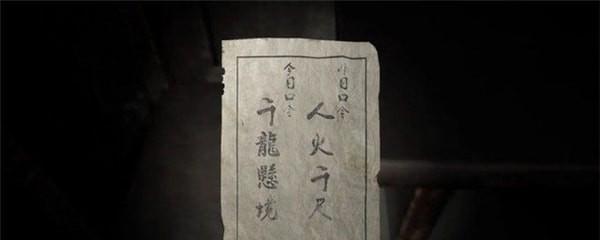 昨日口令
人火千尺
今日口令
千龍懸境